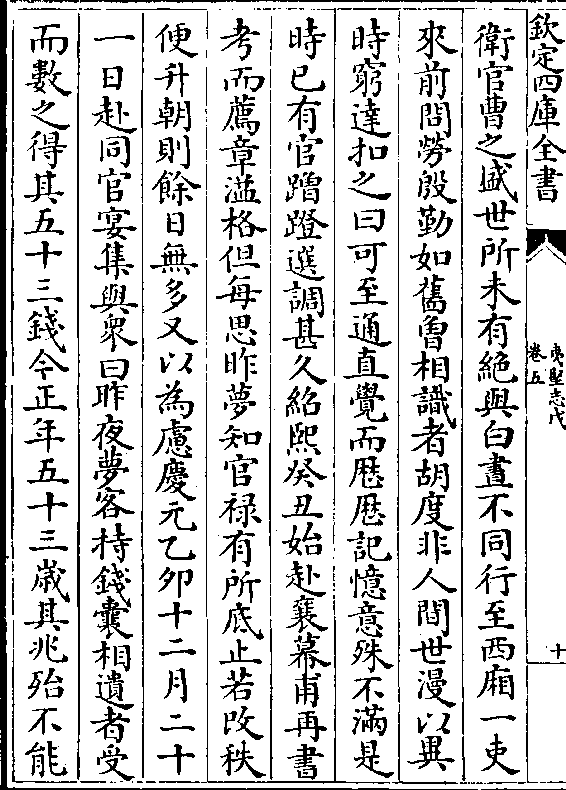 欽定四庫全書
夷堅志戊
卷五
十
衛官曹之盛世所未有絶與白晝不同行至西廂一吏
來前問勞殷勤如舊曾相識者胡度非人間世漫以異
時窮達扣之曰可至通直覺而厯厯記憶意殊不滿是
時已有官蹭蹬選調甚久紹熙癸丑始赴襄幕甫再書
考而薦章溢格但每思昨夢知官禄有所底止若改秩
便升朝則餘日無多又以為慮慶元乙卯十二月二十
一日赴同官宴集與衆曰昨夜夢客持錢囊相遺者受
而數之得其五十三錢今正年五十三嵗其兆殆不能